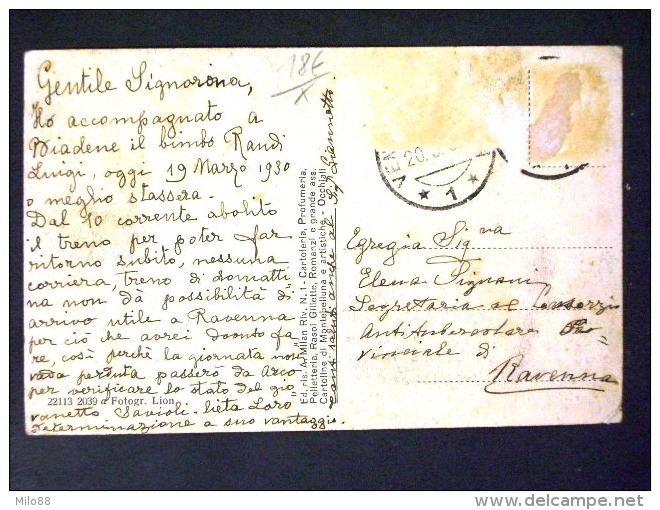 Gentile Signorina,
Ho accompagnato a
Biadene il bimbo Randi
Luigi, oggi 19 Marzo 1930
o meglio stassera.
Dal 10 corrente abolito
il treno per poter far
ritorno subito, nessuna
corriera, treno di domatti
na non dà possibilità di
arrivo utile a Ravenna
per ciò che avrei dovuto fa
re, così perchè la giornata non
vada perduta passerò da Arco
per verificare lo stato del gio
vanetto Savioli. lieta Loro
determinazione a suo vantaggio.
22113 2039 a Fotogr. Lion
18€
X
Ed. ris. A. Milan Riv. N. 1 - Cartoleria, Profumeria,
Pelletteria, Rasoi Gillette, Romanzi e grande ass.
Cartoline di Montebelluna e artistiche. - Occhiali
anche al Sig. Giannetto.
20.
1
Egregia Sig.na
Elena Signani
Segretaria al Consorzio
Antitubercolare Pro
vinciale di
Ravenna
Milo88
delcampe.net